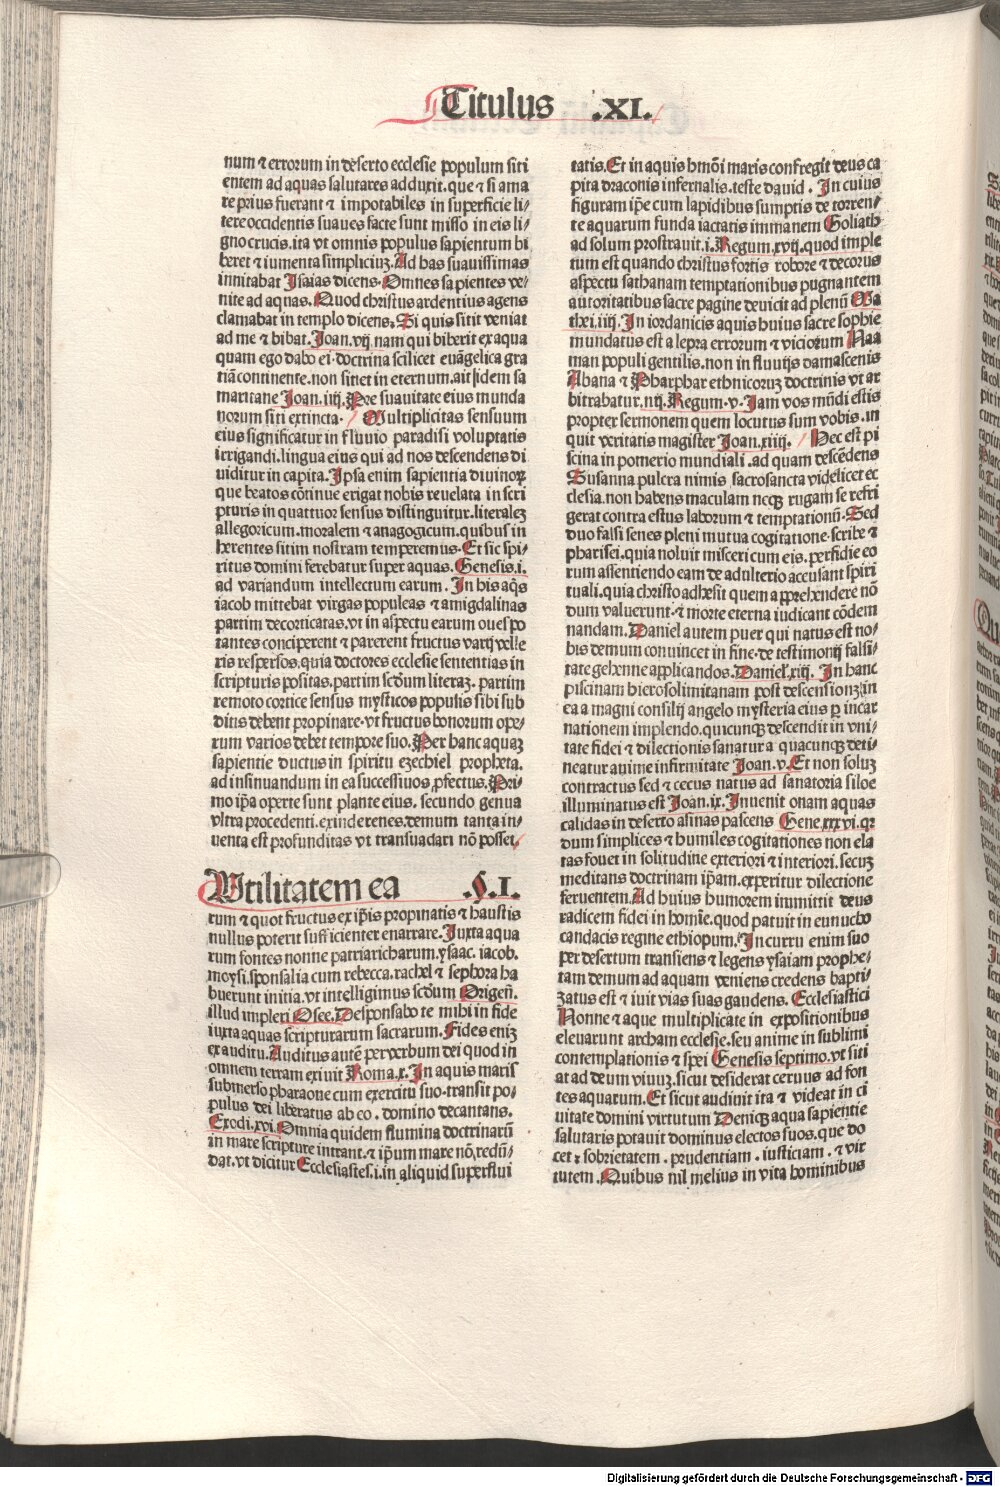 Titulus .XI.
num ⁊ errorum in deserto ecclesie populum siti
entem ad aquas salutares adduxit. que ⁊ si ama
re prius fuerant ⁊ impotabiles in superficie li/
tere occidentis suaues facte sunt misso in eis li/
gno crucis. ita vt omnis populus sapientum bi
beret ⁊ iumenta simpliciuȝ. Ad has suauissimas
inuitabat Isaias dicens. Omnes sapientes ve/
nite ad aquas. Quod christus ardentius agens
clamabat in templo dicens. Si quis sitit veniat
ad me ⁊ bibat. Joan. vij. nam qui biberit ex aqua
quam ego dabo ei. doctrina scilicet euãgelica gra
tiã continente. non sitiet in eternum. ait idem sa
maritane Joan. iiij. Pre suauitate eius munda
norum siti extincta. Multiplicitas sensuum
eius significatur in fluuio paradisi voluptatis
irrigandi. lingua eius qui ad nos descendens di
uiditur in capita. Ipsa enim sapientia diuinoꝝ
que beatos cõtinue erigat nobis reuelata in scri
pturis in quattuor sensus distinguitur. literaleȝ
allegoricum. moralem ⁊ anagogicum. quibus in
herentes sitim nostram temperemus. Et sic spi/
ritus domini ferebatur super aquas. Genesis. i.
ad variandum intellectum earum. In his aq̃s
iacob mittebat virgas populeas ⁊ amigdalinas
partim decorticatas. vt in aspectu earum oues po
tantes conciperent ⁊ parerent fructus varij velle
ris respersos. quia doctores ecclesie sententias in
scripturis positas. partim scd̃um literaȝ. partim
remoto cortice sensus mysticos populis sibi sub
ditis debent propinare. vt fructus bonorum ope/
rum varios debet tempore suo. Per hanc aquaȝ
sapientie ductus in spiritu ezechiel propheta.
ad insinuandum in ea successiuos ꝓfectus. Pri/
mo ip̃a operte sunt plante eius. secundo genua
vltra procedenti. exinde renes. demum tanta in/
uenta est profunditas vt transuadari nõ posset.
Vtilitatem ea .§.I.
rum ⁊ quot fructus ex ip̃is propinatis ⁊ haustis
nullus poterit sufficienter enarrare. Juxta aqua
rum fontes nonne patriaricharum. ysaac. iacob.
moysi. sponsalia cum rebecca. rachel ⁊ sephora ha
buerunt initia. vt intelligimus scd̃um Origeñ.
illud impleri Osee. Desponsabo te mihi in fide
iuxta aquas scripturarum sacrarum. Fides eniȝ
ex auditu. Auditus autẽ per verbum dei quod in
omnem terram exiuit Roma. x. In aquis maris
submerso pharaone cum exercitu suo. transit po/
pulus dei liberatus ab eo. domino decantans.
Exodi. xvi. Omnia quidem flumina doctrinarũ
in mare scripture intrant. ⁊ ip̃um mare nõ redũ/
dat. vt dicitur Ecclesiastes. i. in aliquid superflui
tatis. Et in aquis hmõi maris confregit deus ca
pita draconis infernalis. teste dauid. In cuius
figuram ip̃e cum lapidibus sumptis de torren/
te aquarum funda iactatis immanem Goliath
ad solum prostrauit. i. Regum. xvij. quod imple
tum est quando christus fortis robore ⁊ decorus
aspectu sathanam temptationibus pugnantem
autoritatibus sacre pagine deuicit ad plenũ Ma
thei. iiij. In iordanicis aquis huius sacre sophie
mundatus est a lepra errorum ⁊ viciorum Naa
man populi gentilis. non in fluuijs damascenis
Abana ⁊ Pharphar ethnicoruȝ doctrinis vt ar
bitrabatur. iiij. Regum. v. Jam vos mũdi estis
propter sermonem quem locutus sum vobis. in
quit veritatis magister Joan. xiiij. Hec est pi
scina in pomerio mundiali. ad quam descẽdens
Susanna pulcra nimis sacrosancta videlicet ec
clesia. non habens maculam neqꝫ rugam se refri
gerat contra estus laborum ⁊ temptationũ. Sed
duo falsi senes pleni mutua cogitatione. scribe ⁊
pharisei. quia noluit misceri cum eis. perfidie eo
rum assentiendo eam de adulterio accusant spiri
tuali. quia christo adhesit quem apprehendere nõ
dum valuerunt. ⁊ morte eterna iudicant cõdem
nandam. Daniel autem puer qui natus est no/
bis demum conuincet in fine. de testimonij falsi/
tate gehenne applicandos. Daniel. xiij. In hanc
piscinam hierosolimitanam post descensionȝ in
ea a magni consilij angelo mysteria eius ꝑ incar
nationem implendo. quicunqꝫ descendit in vni/
tate fidei ⁊ dilectionis sanatur a quacunqꝫ deti/
neatur anime infirmitate Joan. v. Et non soluȝ
contractus sed ⁊ cecus natus ad sanatoria siloe
illuminatus est Joan. ix. Inuenit onam aquas
calidas in deserto asinas pascens Gene. xxxvi. qꝛ
dum simplices ⁊ humiles cogitationes non ela
tas fouet in solitudine exteriori ⁊ interiori. secuȝ
meditans doctrinam ip̃am. experitur dilectione
feruentem. Ad huius humorem immittit deus
radicem fidei in homĩe. quod patuit in eunucho
candacis regine ethiopum. In curru enim suo
per desertum transiens ⁊ legens ysaiam prophe/
tam demum ad aquam veniens credens bapti/
zatus est ⁊ iuit vias suas gaudens. Ecclesiastici
Nonne ⁊ aque multiplicate in expositionibus
eleuarunt archam ecclesie. seu anime in sublimi
contemplationis ⁊ spei Genesis septimo. vt siti
at ad deum viuuȝ. sicut desiderat ceruus ad fon
tes aquarum. Et sicut audiuit ita ⁊ videat in ci
uitate domini virtutum Deniqꝫ aqua sapientie
salutaris potauit dominus electos suos. que do
cet ⁊ sobrietatem. prudentiam. iusticiam. ⁊ vir
tutem. Quibus nil melius in vita hominibus
Digitalisierung gefördert durch die Deutsche Forschungsgemeinschaft - DFG